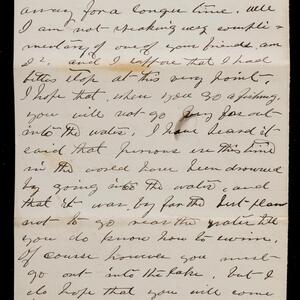 away for a longer time. Well
I am not speaking very compli-
mentary of one of your friends, am
I?, and I suppose that I had
better stop at this very point.
I hope that, when you go a fishing,
you will not go very far out
into the water. I have heard it
said that persons ere this time
in the world have been drowned
by going into the water, and
that it was by far the best plan
not to go near the water till
you do know how to swim.
Of course however you must
go out into the lake, but I
do hope that you will come